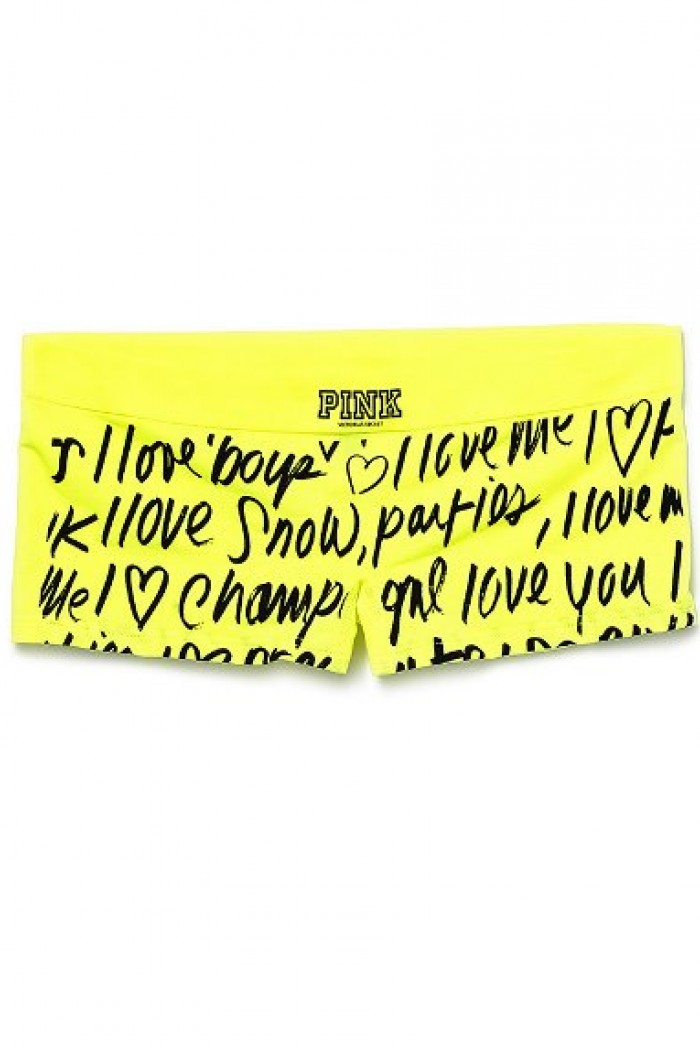 PINK
VICTORIA'S SECRET
I love 'boys' ♡ I love me I ♡
I love Snow, parties, I love
Me I ♡ champ girl love you I